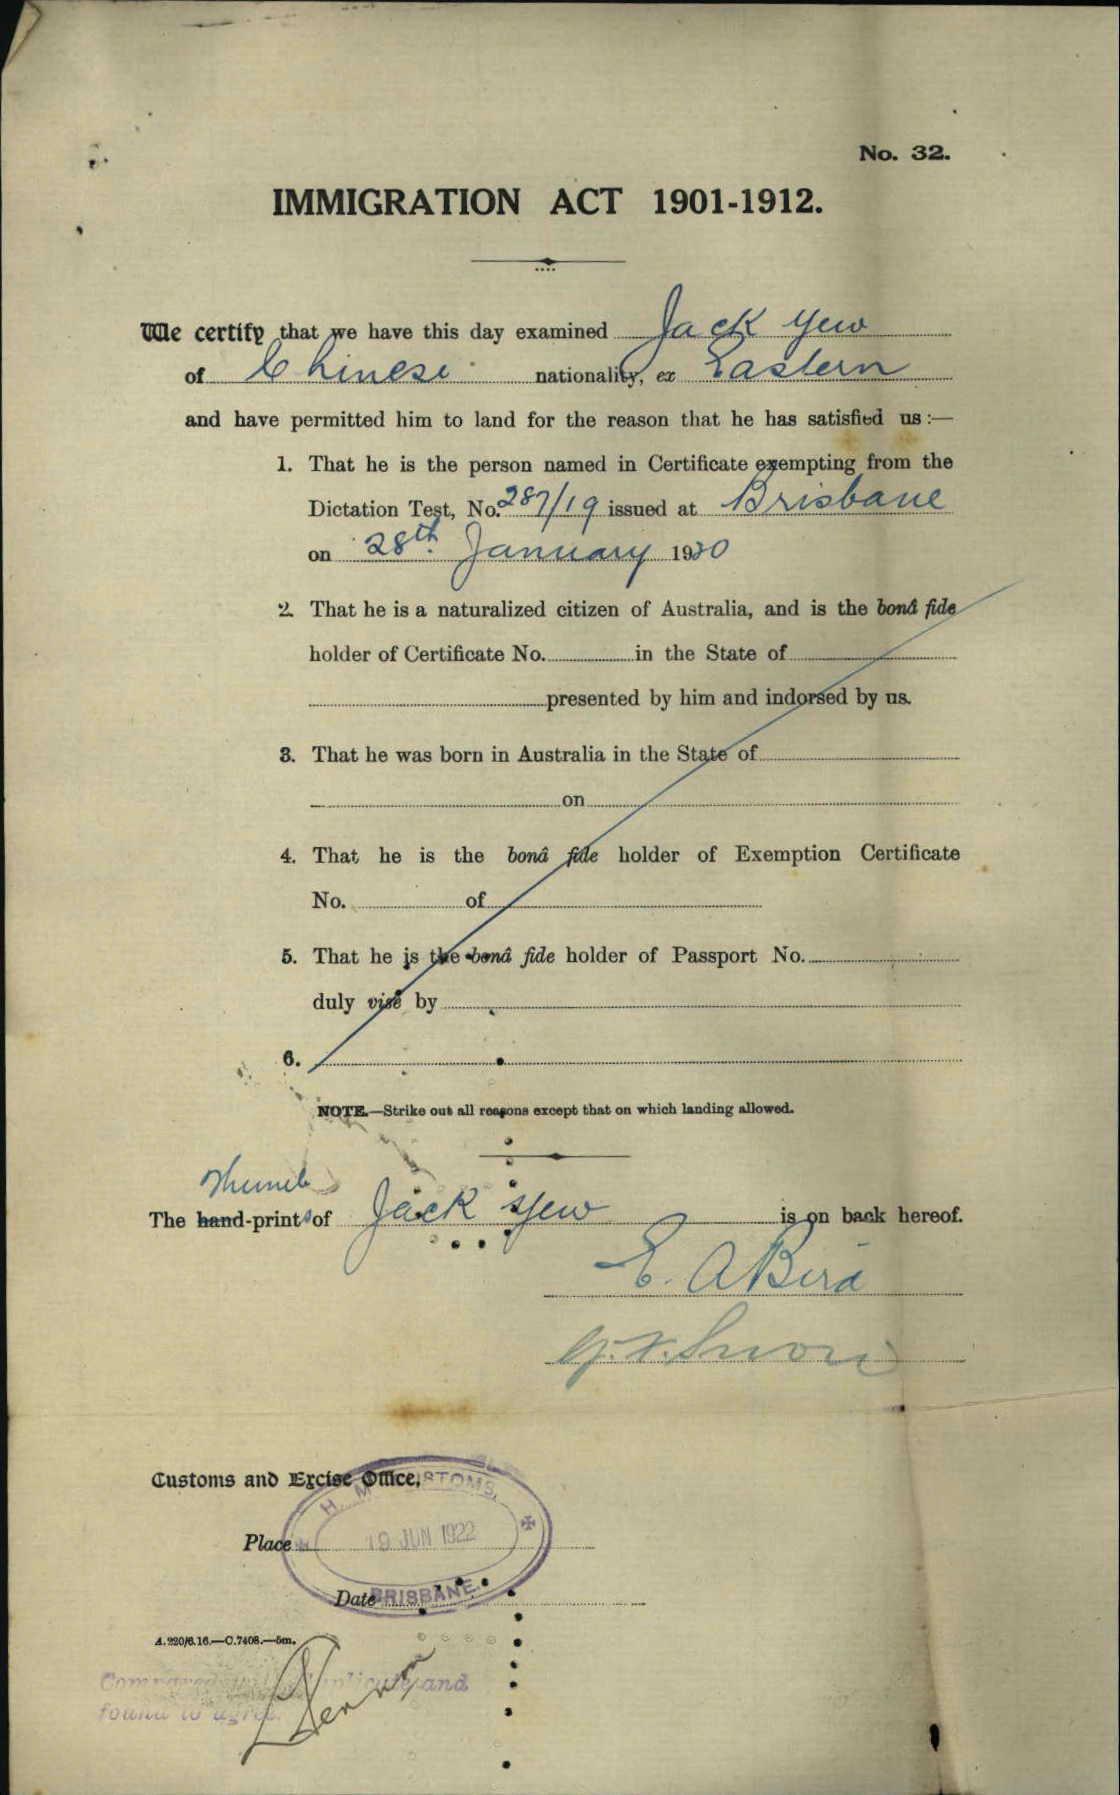 No. 32.
IMMIGRATION ACT 1901-1912.
We certify that we have this day examined Jack Yew
of Chinese nationality, ex Eastern
and have permitted him to land for the reason that he has satisfied us:—
1. That he is the person named in Certificate exempting from the
Dictation Test, No. 287/19 issued at Brisbane
on 28th January 1920
2. That he is a naturalized citizen of Australia, and is the bonâ fide
holder of Certificate No. in the State of
presented by him and indorsed by us.
3. That he was born in Australia in the State of
on
4. That he is the bonâ fide holder of Exemption Certificate
No. of
5. That he is the bonâ fide holder of Passport No.
duly visé by
6.
NOTE.—Strike out all reasons except that on which landing allowed.
Thumb
The hand-prints of Jack Yew is on back hereof.
E. A Bird
Customs and Excise Office,
H. M. CUSTOMS,
Place
19 JUN 1922
Date
BRISBANE.
A.220/6.16.—C.7408.—5m.
Compared duplicate and
found to agree.